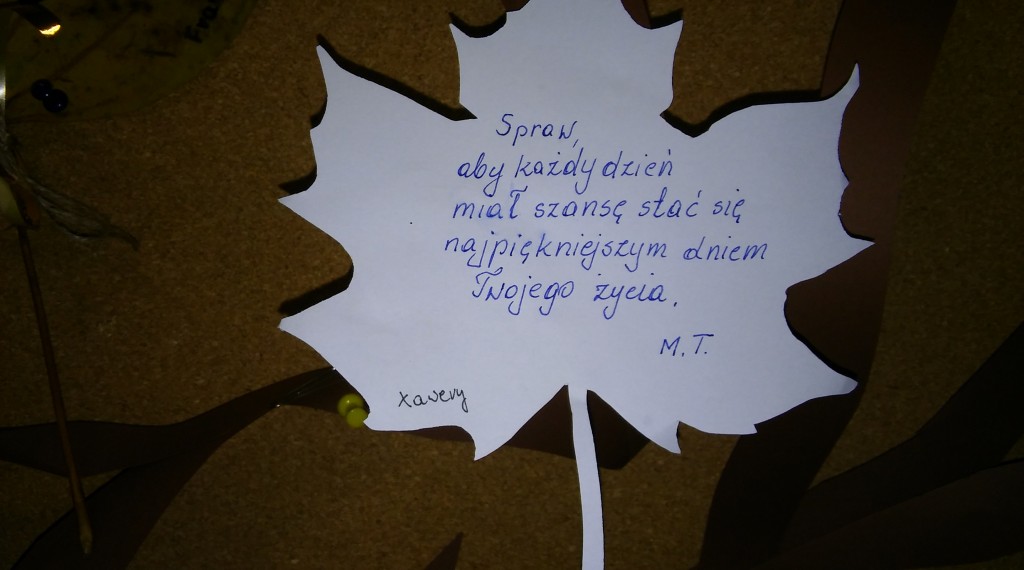 Spraw,
aby każdy dzień
miał szansę stać się
najpiękniejszym dniem
Twojego życia.
M.T.
Xawery